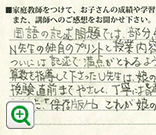 ■家庭教師をつけて、お子さんの成績や学習
また、講師へのご感想をお聞かせ下さい。
国語の記述問題では、部分点
N先生の独自のプリントと授業内容
ついには記述で満点がとれるよう
算数を指導して下さったU先生は、娘の
授業直前まで
"保存版ノート これが娘の